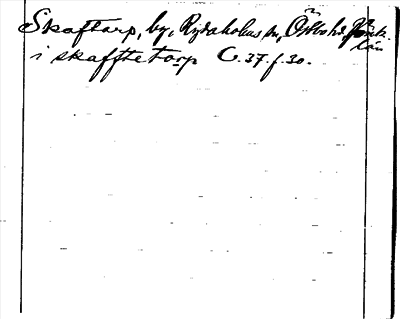 Skaftarp, by, Rydaholms sn, Östbo hd, Jönk. län
i skafftetorp C. 37. f. 30.